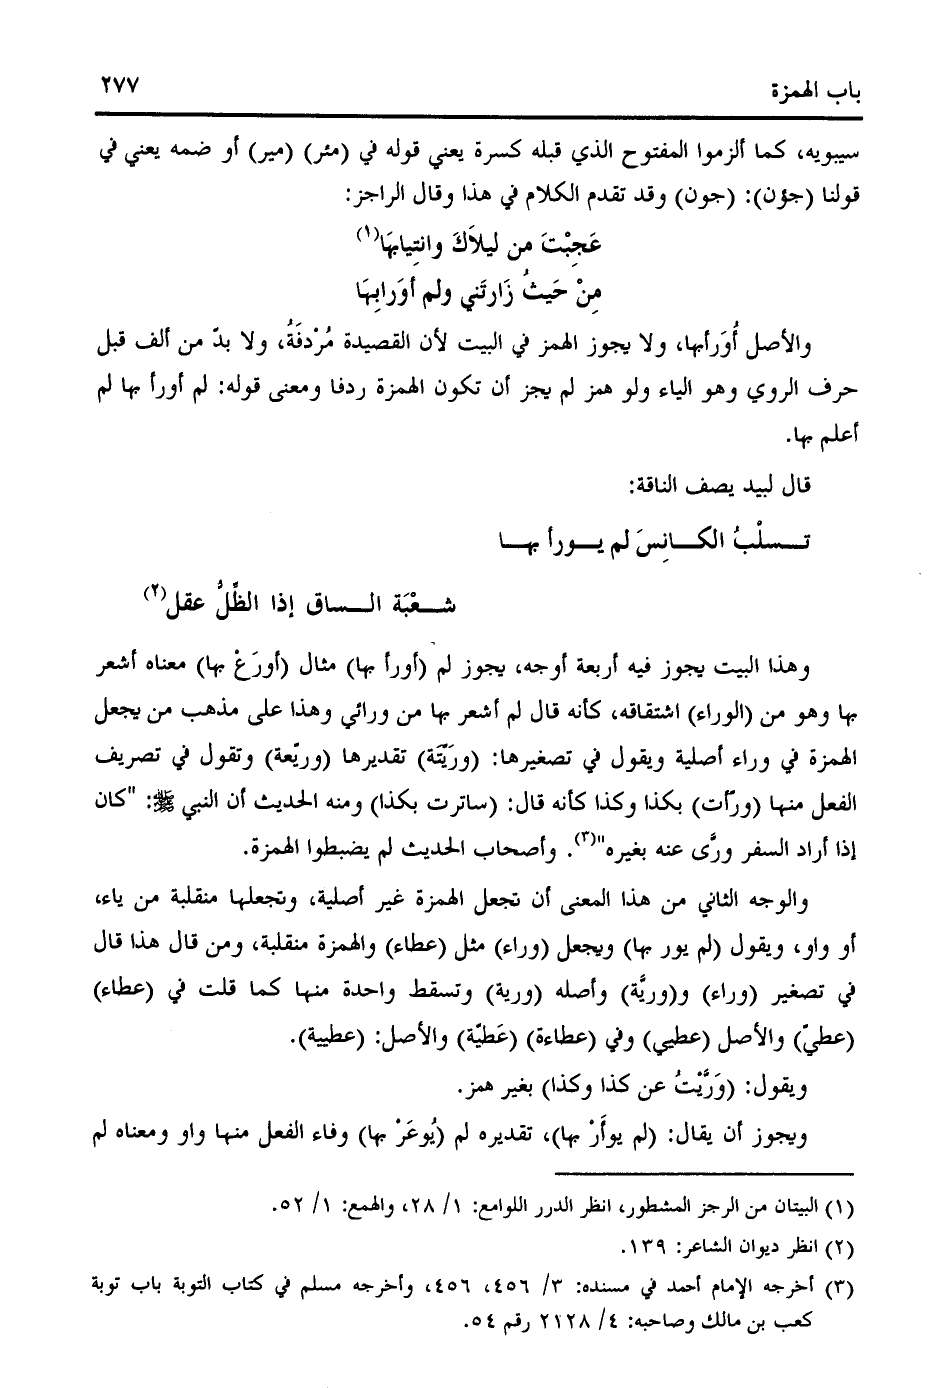 باب الهمزة ٢٧٧
سيبويه، كما ألزموا المفتوح الذي قبله كسرة يعني قوله في (مئر) (مير) أو ضمه يعني في
قولنا (جؤن): (جون) وقد تقدم الكلام في هذا وقال الراجز:
عَجِبْتَ من ليلاَكَ وانتِيابِهَا(١)
مِنْ حَيثُ زَارتَني ولم أوَرابِهَا
والأصل أُوَرأبها، ولا يجوز الهمز في البيت لأن القصيدة مُرْدفَةُ، ولا بدّ من ألف قبل
حرف الروي وهو الياء ولو همز لم يجز أن تكون الهمزة ردفا ومعنى قوله: لم أورأ بها لم
أعلم بها.
قال لبيد يصف الناقة:
تـــسلْبُ الكـــانِسَ لم يـــورأ بهـــا
شـــعْبَة الـــساق إذا الظِّلُّ عقل(٢)
وهذا البيت يجوز فيه أربعة أوجه، يجوز لم (أورأ بها) مثال (أورَعْ بها) معناه أشعر
بها وهو من (الوراء) اشتقاقه، كأنه قال لم أشعر بها من ورائي وهذا على مذهب من يجعل
الهمزة في وراء أصلية ويقول في تصغيرها: (وريّئة) تقديرها (وريّعة) وتقول في تصريف
الفعل منها (ورّأت) بكذا وكذا كأنه قال: (ساترت بكذا) ومنه الحديث أن النبي ﷺ: "كان
إذا أراد السفر ورَّى عنه بغيره"(٣). وأصحاب الحديث لم يضبطوا الهمزة.
والوجه الثاني من هذا المعنى أن تجعل الهمزة غير أصلية، وتجعلها منقلبة من ياء،
أو واو، ويقول (لم يور بها) ويجعل (وراء) مثل (عطاء) والهمزة منقلبة، ومن قال هذا قال
في تصغير (وراء) و(وريَّة) وأصله (ورية) وتسقط واحدة منها كما قلت في (عطاء)
(عطيّ) والأصل (عطيي) وفي (عطاءة) (عَطيّة) والأصل: (عطيية).
ويقول: (وَرَّيْتُ عن كذا وكذا) بغير همز.
ويجوز أن يقال: (لم يوأَرْ بها)، تقديره لم (يُوعَرْ بها) وفاء الفعل منها واو ومعناه لم
(١) البيتان من الرجز المشطور، انظر الدرر اللوامع: ١/ ٢٨، والهمع: ١/ ٥٢.
(٢) انظر ديوان الشاعر: ١٣٩.
(٣) أخرجه الإمام أحمد في مسنده: ٣/ ٤٥٦، ٤٥٦، وأخرجه مسلم في كتاب التوبة باب توبة
كعب بن مالك وصاحبه: ٤/ ٢١٢٨ رقم ٥٤.